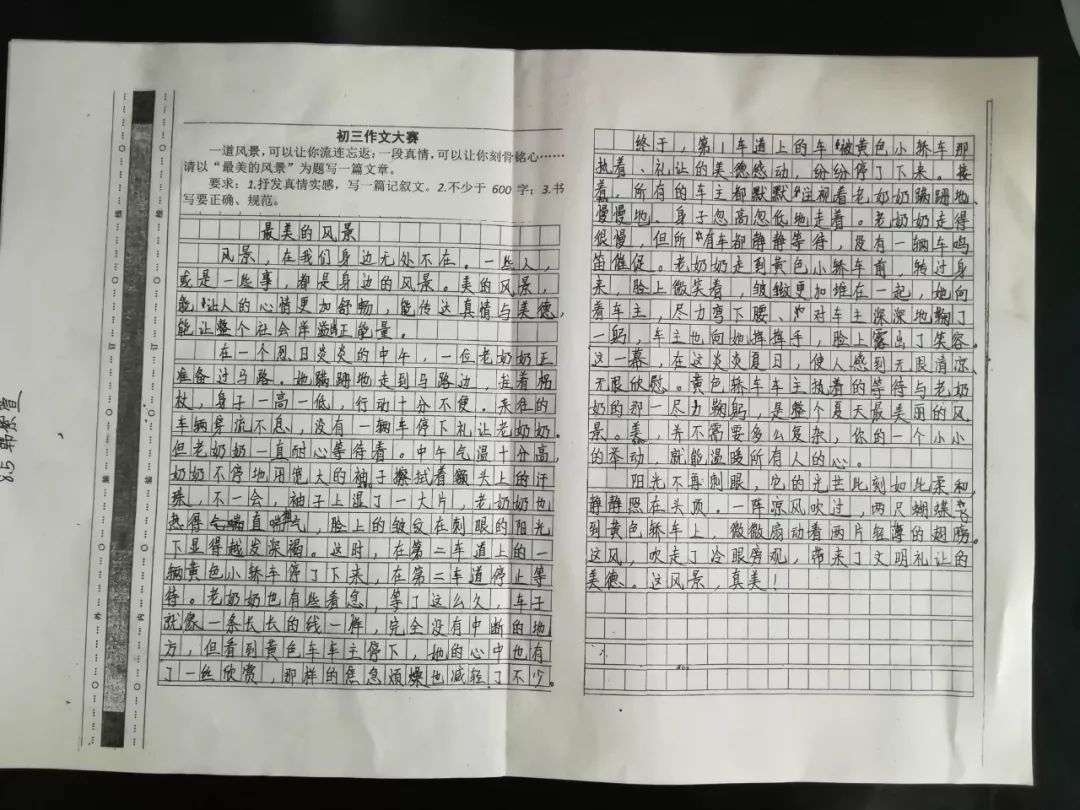 初三作文大赛
一道风景,可以让你流连忘返;一段真情,可以让你刻骨铭心……
请以“最美的风景”为题写一篇文章。
要求:1.抒发真情实感,写一篇记叙文。2.不少于 600 字;3.书
写要正确、规范。
最美的风景
风景,在我们身边无处不在。一些人,
或是一些事,都是身边的风景。美的风景,
能让人的心情更加舒畅,能传达真情与美德,
能让整个社会洋溢正能量。
在一个烈日炎炎的中午,一位老奶奶正
准备过马路。她蹒跚地走到马路边,拄着拐
杖,身子一高一低,行动十分不便。来往的
车辆停流不息,没有一辆车停下礼让老奶奶。
但老奶奶一直耐心等待着。中午气温十分高,
奶奶不停地用宽大的袖子擦拭着额头上的汗
珠,不一会,袖子上湿了一大片,老奶奶也
热得气喘直呼气,脸上的皱纹在刺眼的阳光
下显得越发深褐。这时,在第二车道上的一
辆黄色小轿车停了下来,在第二车道停止等
待。老奶奶也有些着急,等了这么久,车子
就像一条长长的线一样,完全没有中断的地
方,但看到黄色车车主停下,她的心中也有
了一丝欣赏,那样的焦急烦燥也减轻了不少。
终于,第1车道上的车被黄色小轿车那
执着、礼让的美德感动,纷纷停了下来。接
着,所有的车主都默默注视着老奶奶蹒跚地、
慢慢地、身子忽高忽低地走着。老奶奶走得
很慢,但所有车都静静等待,没有一辆车鸣
笛催促。老奶奶走到黄色小轿车前,转过身
来,脸上微笑着,皱纹更加堆在一起,她向
着车主,尽力弯下腰、对车主深深地鞠了
一躬,车主也向她挥挥手,脸上露出了笑容。
这一幕,在这炎炎夏日,使人感到无限清凉、
无限欣慰。黄色轿车车主执着的等待与老奶
奶的那一尽力鞠躬,是整个夏天最美丽的风
景。美,并不需要多么复杂,你的一个小小
的举动,就能温暖所有人的心。
阳光不再刺眼,它的光芒此刻如此柔和,
静静照在头顶。一阵凉风吹过,两只蝴蝶
到黄色轿车上,微微扇动着两片轻薄的翅膀
这风,吹走了冷眼旁观,带来了文明礼让的
美德。这风景,真美!